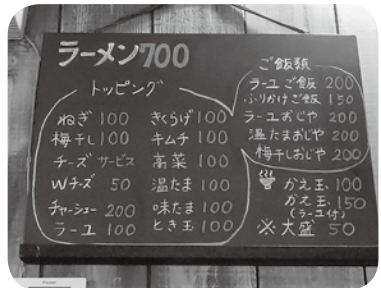 ラーメン700
トッピング
ねぎ 100
梅干し 100
チーズ サービス
Wチーズ 50
チャーシュー 200
ラーユ 100
きくらげ 100
キムチ 100
高菜 100
温たま 100
味たま 100
とき玉 100
ご飯類
ラーユご飯 200
ふりかけご飯 150
ラーユおじや 200
温たまおじや 200
梅干しおじや 200
かえ玉 100
かえ玉 150
(ラーユ付)
※大盛 50